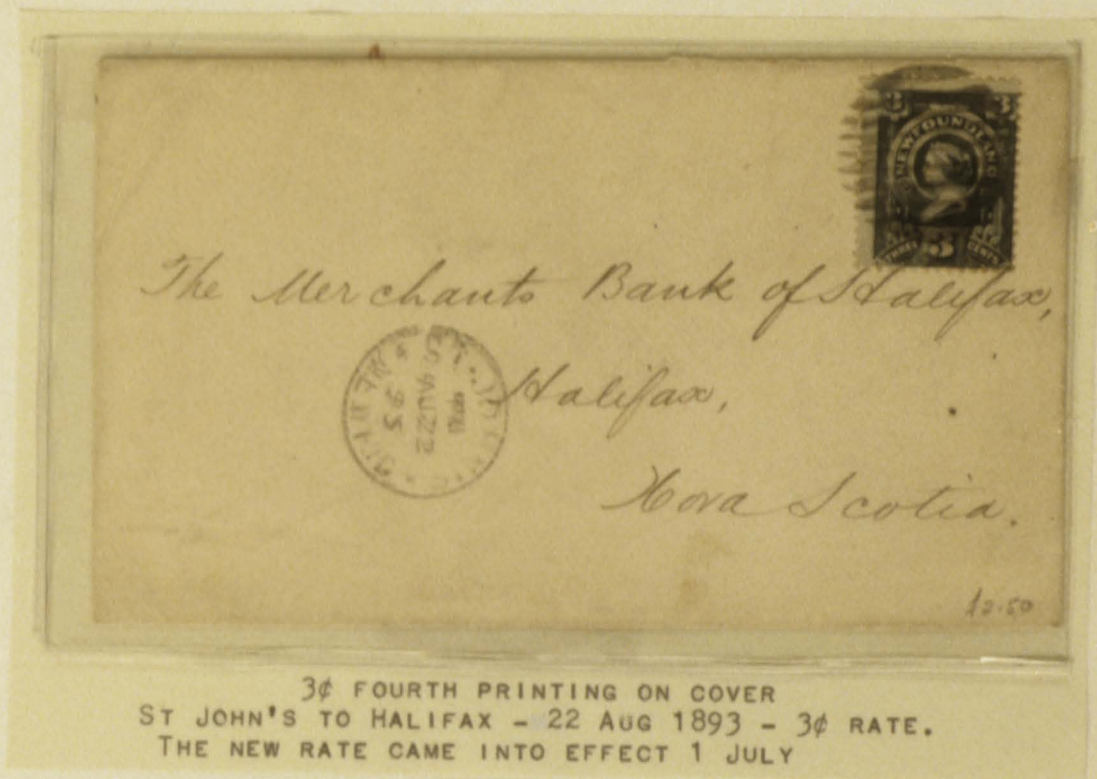 3 3
NEWFOUNDLAND
THREE 3 CENTS
The Merchants Bank of Halifax,
Halifax,
Nova Scotia.
AU 22
93
$2.50
3¢ FOURTH PRINTING ON COVER
ST JOHN'S TO HALIFAX - 22 AUG 1893 - 3¢ RATE.
THE NEW RATE CAME INTO EFFECT 1 JULY